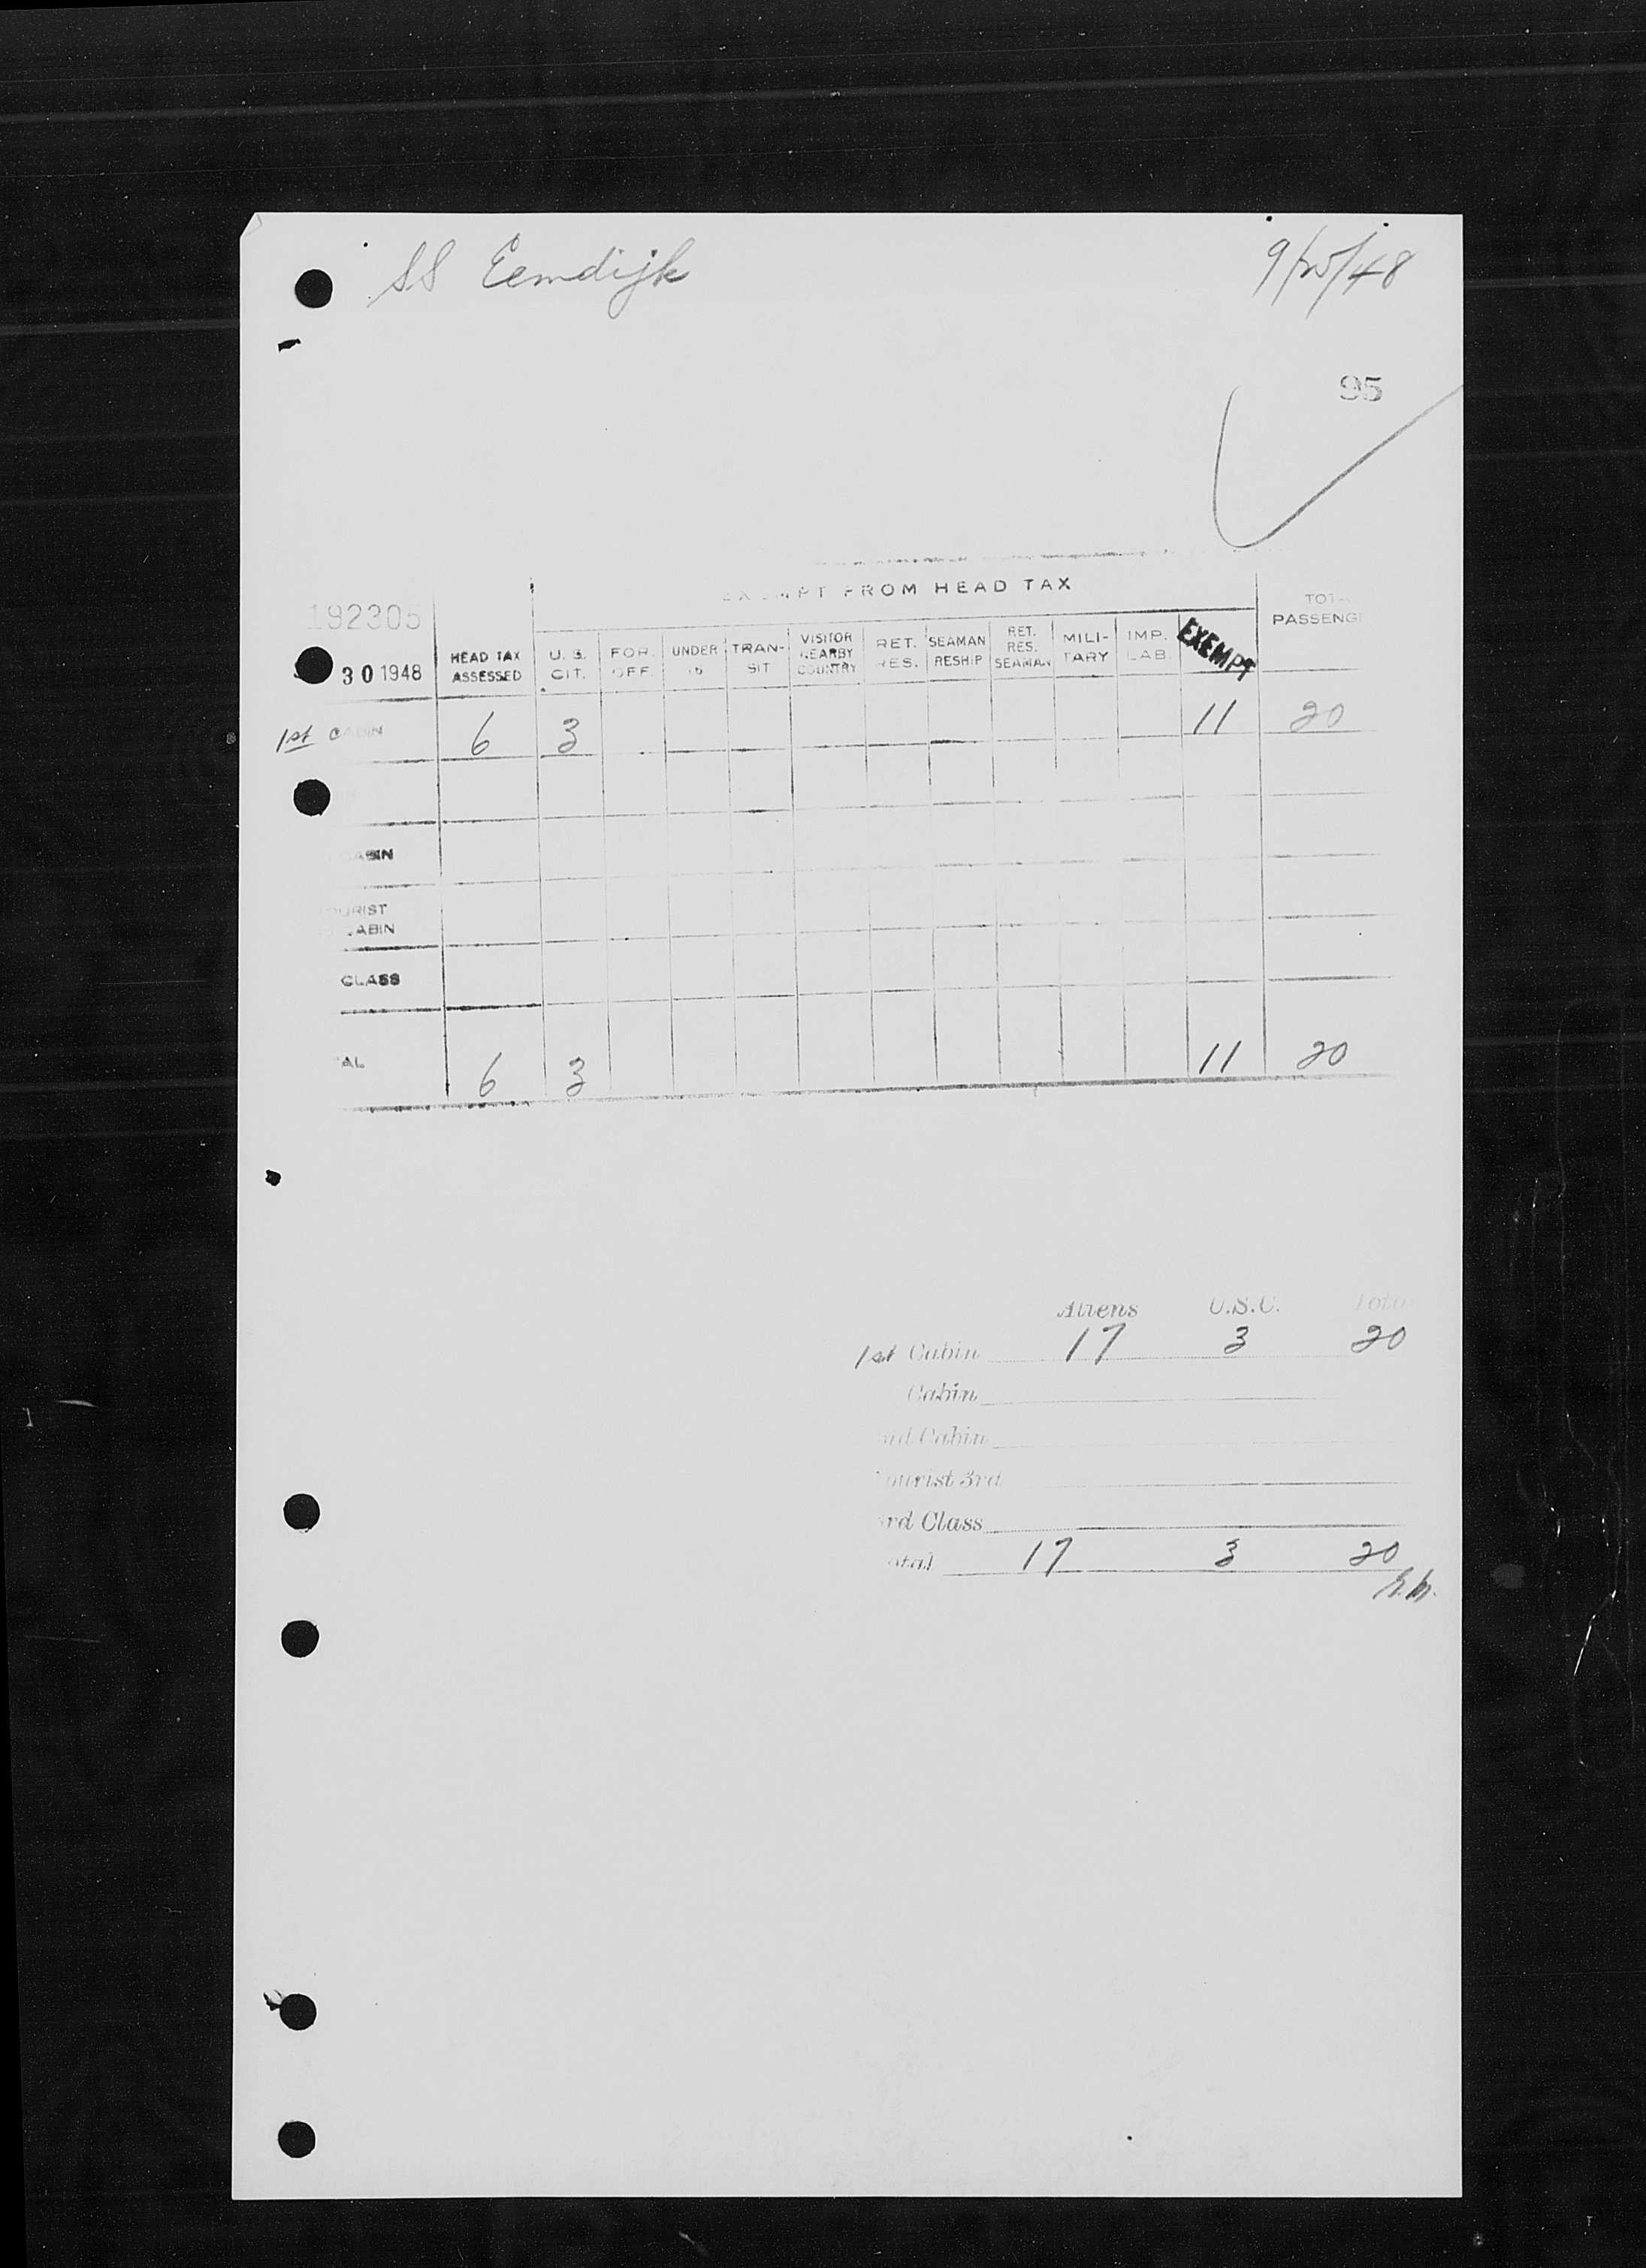 SS Eemdijk 9/25/48
95
EXEMPT FROM HEAD TAX
192305
30 1948
HEAD TAX ASSESSED U. S. CIT. FOR. OFF. UNDER 16 TRAN-SIT VISITOR NEARBY COUNTRY RET. RES. SEAMAN RESHIP RET. RES. SEAMAN MILI-TARY IMP. LAB. EXEMPT TOT PASSENG
1st CABIN 6 3 11 20
CABIN
OURIST
CABIN
CLASS
AL 6 3 11 20
Aliens U.S.C. Tota
1st Cabin 17 3 20
Cabin
nd Cabin
ourist 3rd
rd Class
otal 17 3 20